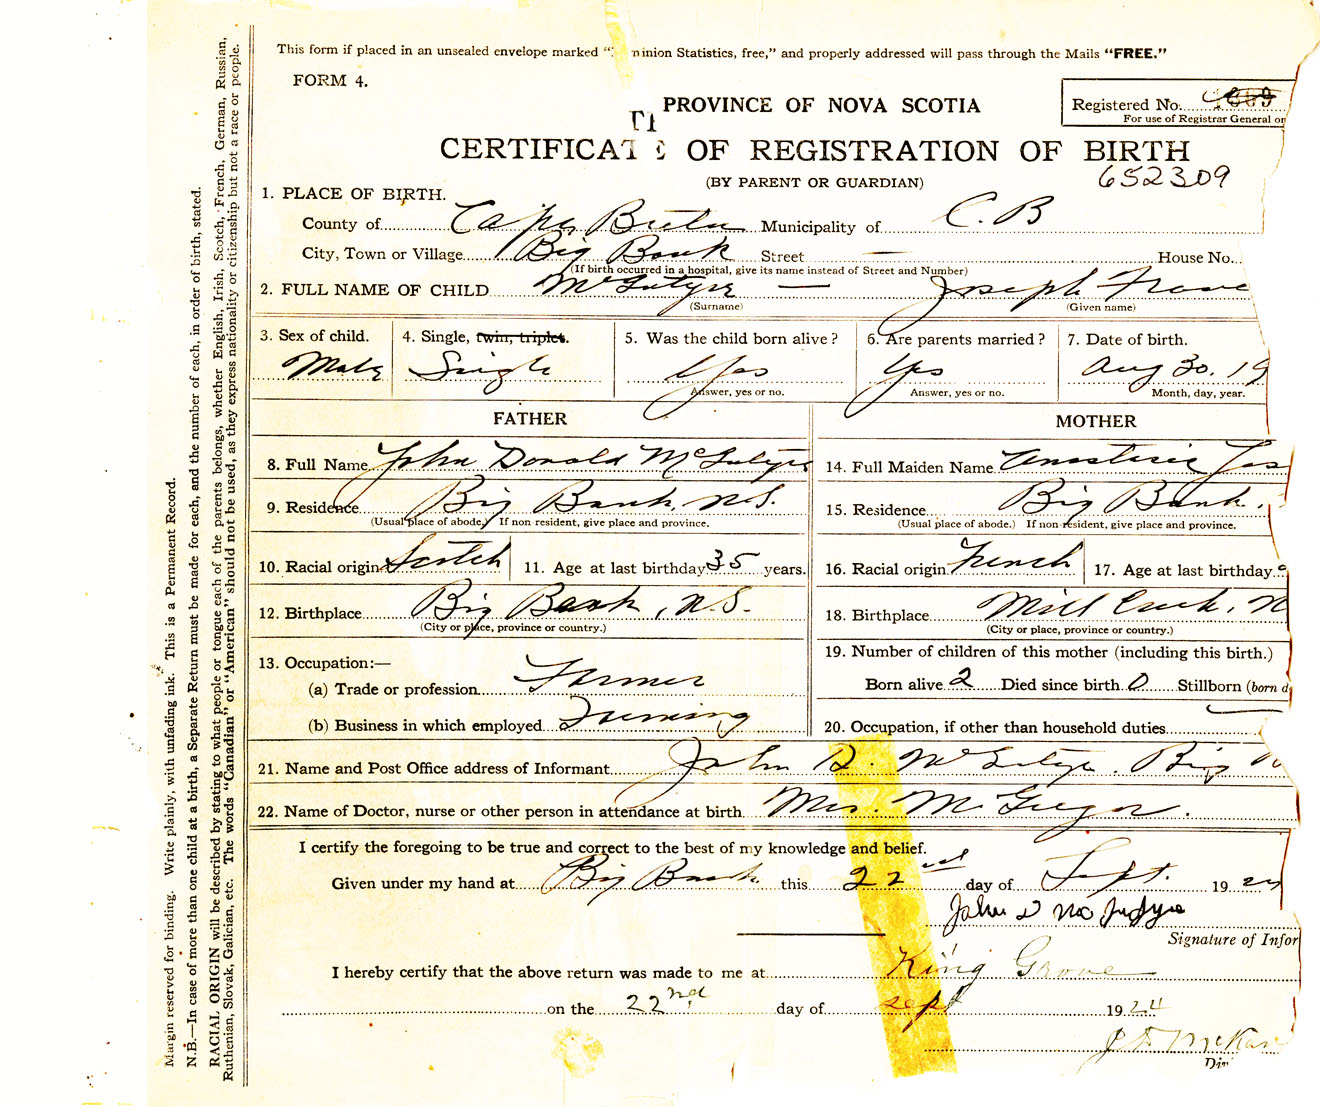 This form if placed in an unsealed envelope marked "minion Statistics, free," and properly addressed will pass through the Mails "FREE."
FORM 4.
PROVINCE OF NOVA SCOTIA
Registered No.
For use of Registrar General or
CERTIFICAT OF REGISTRATION OF BIRTH
(BY PARENT OR GUARDIAN)
652309
1. PLACE OF BIRTH.
County of Cape Breton Municipality of C. B
City, Town or Village Big Bank Street — House No.
(If birth occurred in a hospital, give its name instead of Street and Number)
2. FULL NAME OF CHILD McIntyre — Joseph
(Surname) (Given name)
3. Sex of child. 4. Single, twin, triplet. 5. Was the child born alive? 6. Are parents married? 7. Date of birth.
Male Single Yes Yes Aug 30. 19
Answer, yes or no. Answer, yes or no. Month, day, year.
FATHER MOTHER
8. Full Name John Donald McIntyre 14. Full Maiden Name
9. Residence Big Bank, N.S. 15. Residence Big Bank.
(Usual place of abode.) If non resident, give place and province. (Usual place of abode.) If non-resident, give place and province.
10. Racial origin Scotch 11. Age at last birthday 35 years. 16. Racial origin French 17. Age at last birthday
12. Birthplace Big Bank, N.S. 18. Birthplace Mill Creek, N
(City or place, province or country.) (City or place, province or country.)
13. Occupation:— 19. Number of children of this mother (including this birth.)
(a) Trade or profession Farmer Born alive 2 Died since birth 0 Stillborn (born d
(b) Business in which employed Farming 20. Occupation, if other than household duties
21. Name and Post Office address of Informant John D. McIntyre. Big
22. Name of Doctor, nurse or other person in attendance at birth Mrs. McGregor.
I certify the foregoing to be true and correct to the best of my knowledge and belief.
Given under my hand at Big Bank this 22nd day of Sept. 1924
John D McIntyre
Signature of Infor
I hereby certify that the above return was made to me at King Grove
on the 22nd day of sept 1924
Margin reserved for binding. Write plainly, with unfading ink. This is a Permanent Record.
N.B.—In case of more than one child at a birth, a Separate Return must be made for each, and the number of each, in order of birth, stated.
RACIAL ORIGIN will be described by stating to what people or tongue each of the parents belongs, whether English, Irish, Scotch, French, German, Russian,
Ruthenian, Slovak, Galician, etc. The words "Canadian" or "American" should not be used, as they express nationality or citizenship but not a race or people.